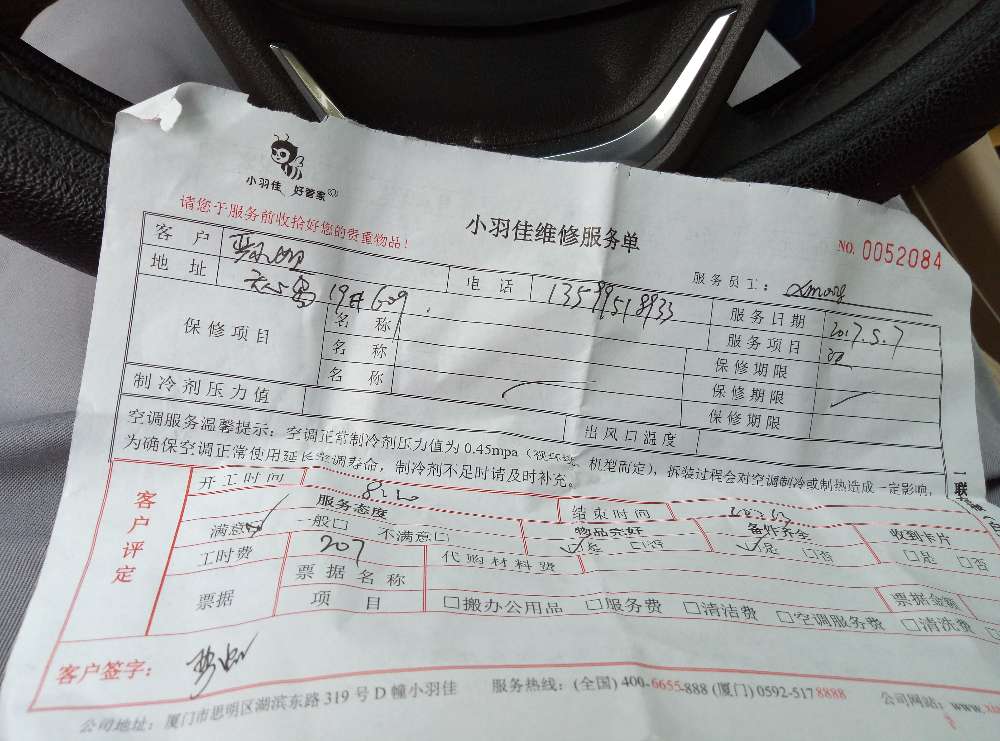 小羽佳 好管家
请您于服务前收拾好您的贵重物品!
小羽佳维修服务单
NO. 0052084
服务员工:
客户 电话 13599518933 服务日期 2017.5.7
地址 19# 609 服务项目
保修项目 名称 保修期限
名称 保修期限
名称 保修期限
制冷剂压力值 出风口温度
空调服务温馨提示:空调正常制冷剂压力值为 0.45mpa(视环境、机型而定),拆装过程会对空调制冷或制热造成一定影响,
为确保空调正常使用延长空调寿命,制冷剂不足时请及时补充。
一联
客户评定
开工时间 结束时间
服务态度 物品完好 备件齐全 收到卡片
满意 一般□ 不满意□ 是 □否 是 □否 □是 □否
工时费 207 代购材料费
票据 票据名称 票据金额
项目 □搬办公用品 □服务费 □清洁费 □空调服务费 □清洗费
客户签字:
公司地址:厦门市思明区湖滨东路 319 号 D 幢小羽佳 服务热线:(全国) 400-6655-888 (厦门) 0592-5178888 公司网站:www.xi